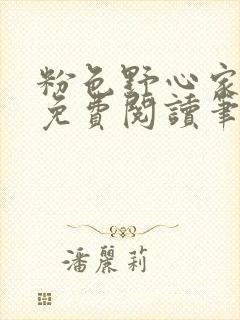 粉色野心家
免費閱讀筆
潘麗莉